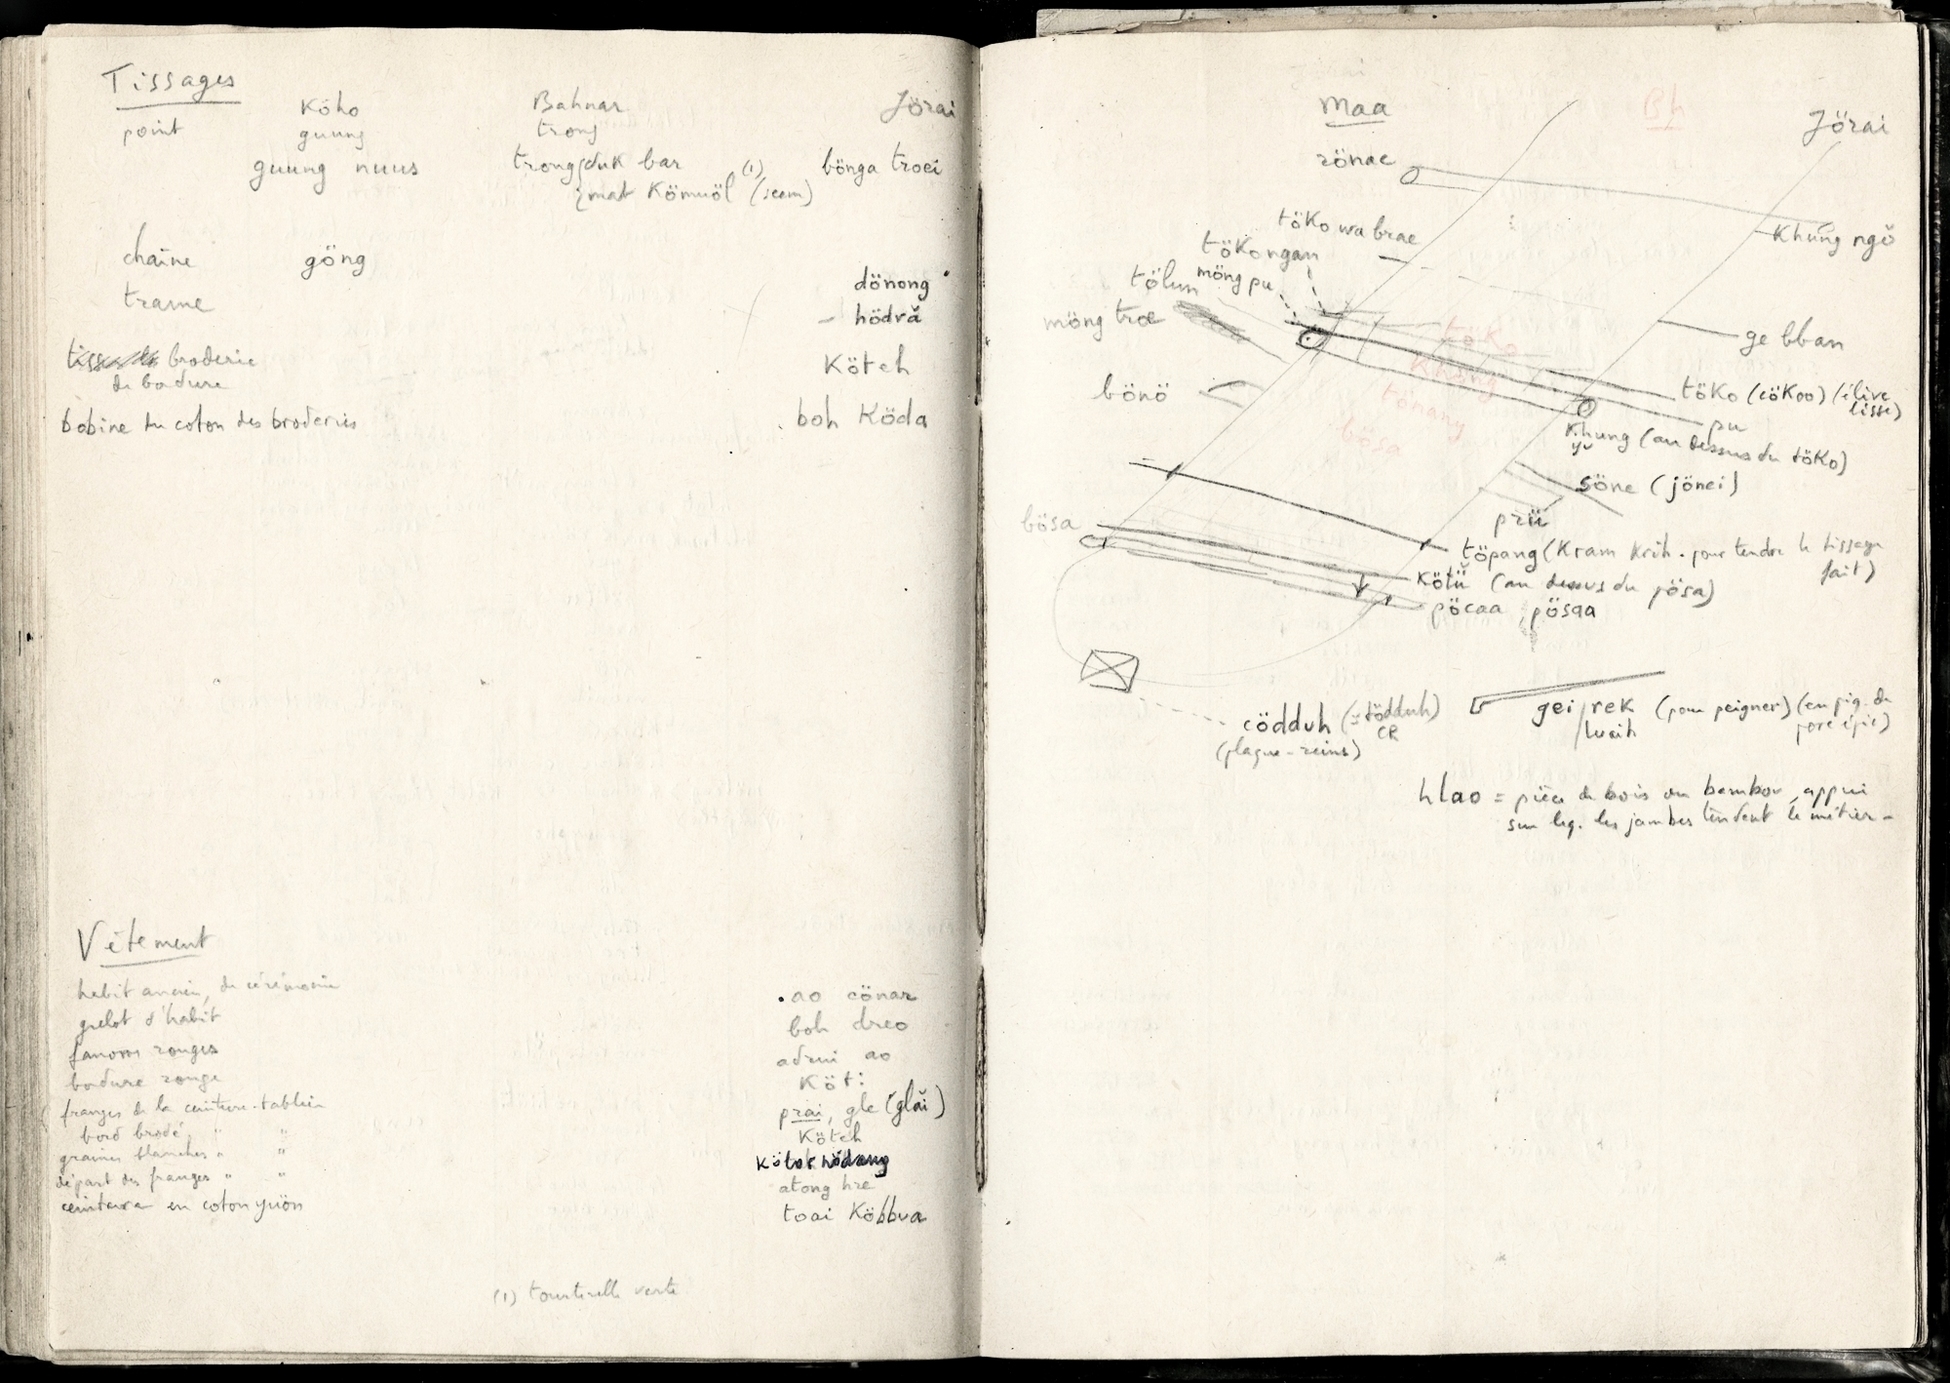 Tissages
Köho Bahnar Jörai
point guung trong
guung nuus trong duk bar bönga troei
mat Kömuöl (1) (seem)
chaîne göng
dönong
trame – hödră
broderie Köteh
de bordure
bobine du coton des broderies boh Köda
Vêtement
habit ancien, de cérémonie ao cönar
grelot d'habit boh dreo
fanons rouges adrui ao
bordure rouge Köti
franges de la ceinture-tablier prai, gle (glăi)
bord brodé " " Köteh
graines blanches " " Kötok hödang
départ des franges " " atong hre
ceinture en coton yuön toai Köbbua
(1) tourterelle verte
Maa Bh Jörai
rönae
töko wa brae Khŭng ngŏ
tökongan
tölun möng pu
möng troe töko ge bban
Khung
bönö tönang töko (cökoo) (élive lisse)
bösa pu
Khung yŭ (au dessus du töko)
söne (jönei)
bösa prii
töpang (Kram Krih. pour tendre le tissage fait)
Kötii (au dessus du pösa)
pöcaa, pösaa
cödduh (= tödduh) CR
(plaque-reins)
gei rek (pour peigner) (en piq. de porc épic)
luaih
hlao = pièce de bois ou bambou, appui
sur leq. les jambes tendent le métier –